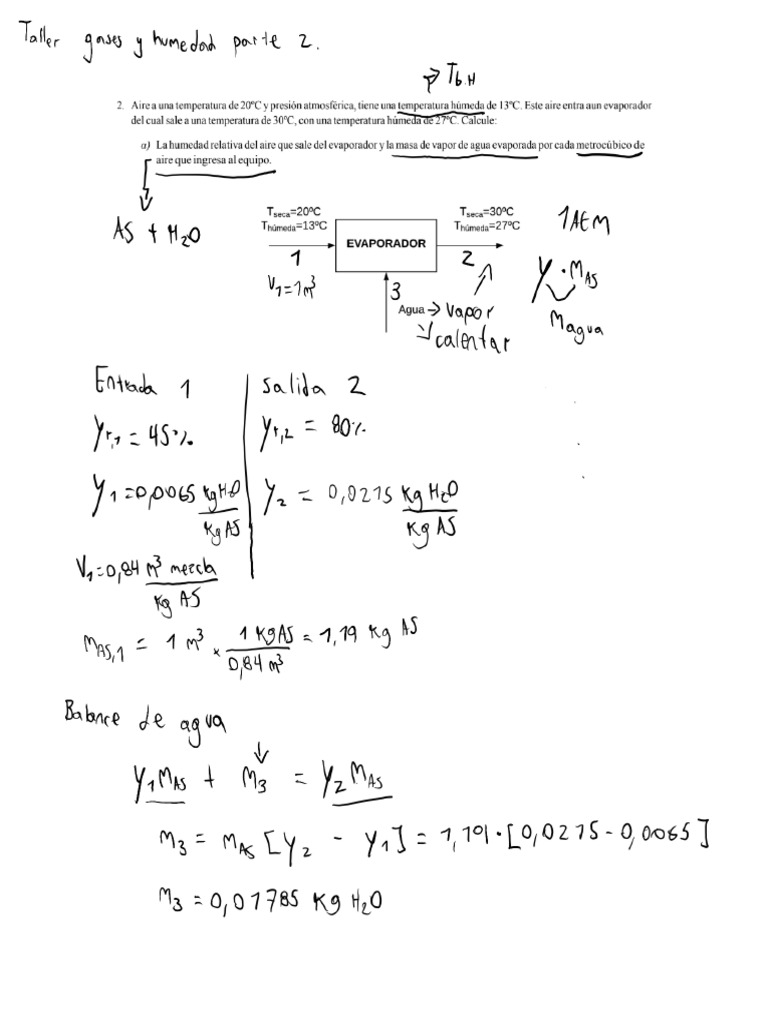 Taller gases y humedad parte 2.
→ Tb.H
2. Aire a una temperatura de 20ºC y presión atmosférica, tiene una temperatura húmeda de 13ºC. Este aire entra aun evaporador
del cual sale a una temperatura de 30ºC, con una temperatura húmeda de 27ºC. Calcule:
a) La humedad relativa del aire que sale del evaporador y la masa de vapor de agua evaporada por cada metrocúbico de
aire que ingresa al equipo.
AS + H2O
Tseca=20ºC
Thúmeda=13ºC
1
V1=1m³
EVAPORADOR
Tseca=30ºC
Thúmeda=27ºC
2
1 AEM
Y · MAS
Magua
3
Agua → vapor
↳ calentar
Entrada 1
Yr,1 = 45%
Y1=0,0065 kg H2O / kg AS
V1=0,84 m³ mezcla / kg AS
Salida 2
Yr,2 = 80%
Y2 = 0,0215 kg H2O / kg AS
MAS,1 = 1 m³ × 1 kg AS / 0,84 m³ = 1,19 kg AS
Balance de agua
Y1 MAS + M3 = Y2 MAS
M3 = MAS [Y2 - Y1] = 1,191·[0,0215-0,0065]
M3 = 0,01785 kg H2O